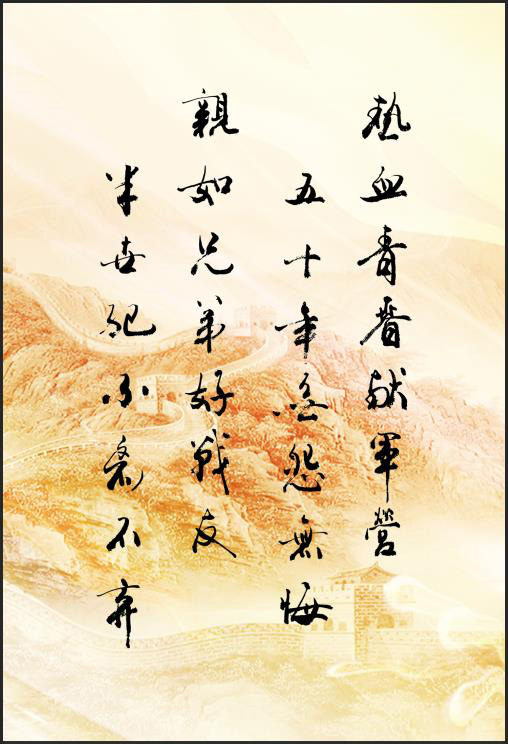 熱血青春献軍營
五十年無怨無悔
親如兄弟好戰友
半世紀不离不弃